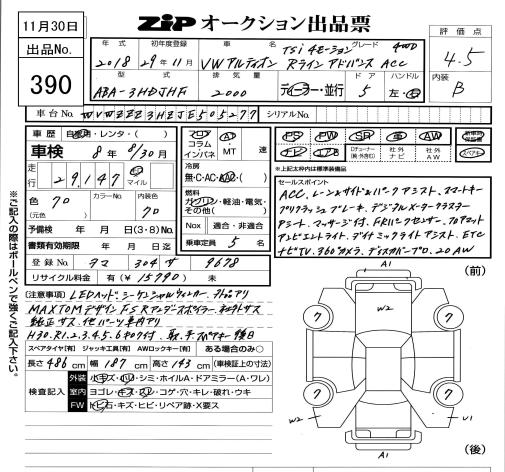 11月30日
出品No.
390
ZIP オークション出品票
評価点
4.5
内装
B
年式 初年度登録 車名 グレード
2018 29年11月 VWアルティオン TSi 4モーション 4WD
Rラインアドバンス ACC
型式 排気量 ドア ハンドル
ABA-3HDJHF 2000 ディーラー・並行 5 左・右
車台No. WVWZZZ3HZJE505277 シリアルNo.
車歴 自家用・レンタ・( )
車検 8年 8/30月
走行 29,147 km マイル
色 クロ カラーNo. 内装色 クロ
(元色)
予備検 年 月 日(3・8)No.
書類有効期限 年 月 日迄
登録No. タマ 304 サ 9678
リサイクル料金 有(¥15790) 未
フロア コラム インパネ AT・MT 速
冷房
無・C・AC・AAC・( )
燃料
ガソリン・軽油・電気・その他( )
Nox 適合・非適合
乗車定員 5 名
PS PW SR 革 AW
ナビ エアB Dチューナー(純・外含む) 社外ナビ 社外AW
新車時保証書
スペアキー
※上記太枠内は標準装備品
セールスポイント
ACC、レーンサイド&パークアシスト、スマートキー
プリクラッシュブレーキ、デジタルメータークラスター
アシスト、マッサージ付、FRパークセンサー、
アンビエントライト、ダイナミックライトアシスト、ETC
ナビTV、360°カメラ、20AW
[注意事項] LEDヘッド
MAXTONデザイン FSRアンダースポイラー
純正サス、他パーツ車内アリ
H30.R1.2.3.4.5.6キロク付
スペアタイヤ[有] ジャッキ工具[有] AWロックキー[有] ある場合のみ○
長さ 486 cm 幅 187 cm 高さ 143 cm (車検証上の寸法)
検査記入
外装 小キズ・凹・シミ・ホイルA・ドアミラー(A・ワレ)
室内 ヨゴレ・キズ・スレ・コゲ・穴・キレ・破れ・ウキ
FW トビ石・キズ・ヒビ・リペア跡・X要ス
※ご記入の際はボールペンで強くご記入下さい。
A1
(前)
W2
7
7
7
7
W2
U1
A1
(後)